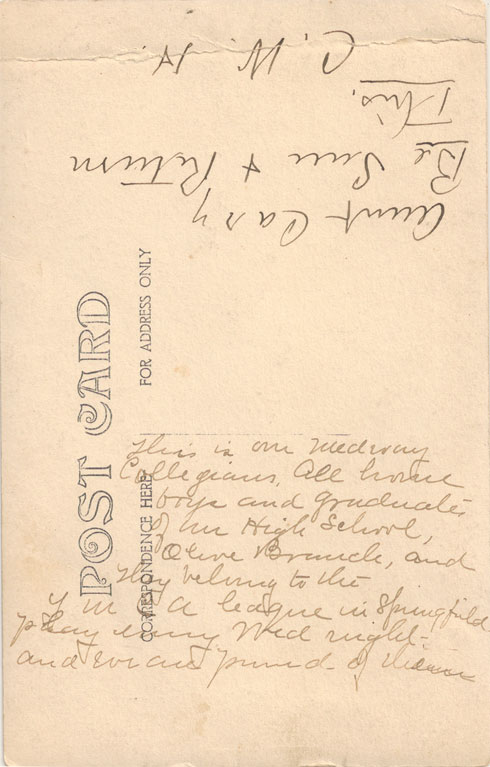 Aunt Casy
Be Sure & Return
This.
C. W. H.
POST CARD
CORRESPONDENCE HERE
FOR ADDRESS ONLY
This is our Medway
Collegians. All home
boys and graduates
of our High School,
Olive Branch, and
They belong to the
Y M C A league in Springfield
play every Wed night-
and we are proud of them